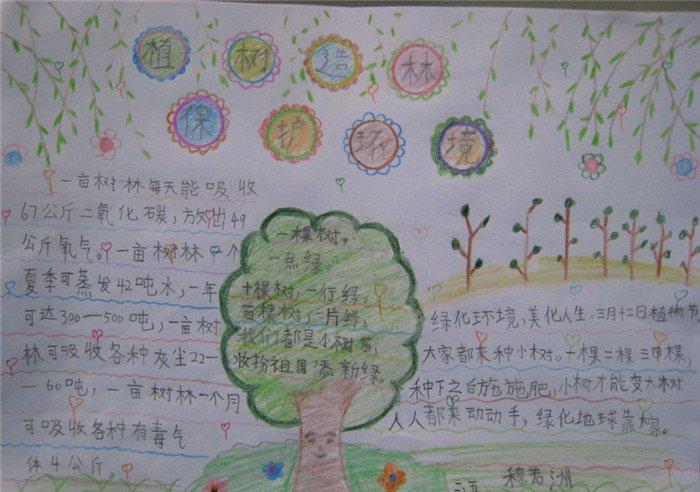 植树造林
保护环境
一亩树林每天能吸收
67公斤二氧化碳,放出49
公斤氧气。一亩树林一个
夏季可蒸发42吨水,一年
可达300一500吨,一亩树
林可吸收各种灰尘22一
一60吨,一亩树林一个月
可吸收各种有毒气
体4公斤。
一棵树。
一点绿
十棵树,一行绿。
百棵树,一片绿,
我们都是小树苗,
妆扮祖国添新绿。
绿化环境,美化人生.三月十二日植物节
大家都来种小树.一棵二棵三四棵,
种下之后施施肥,小树才能变大树
人人都来动动手,绿化地球靠大家。
穆若湖